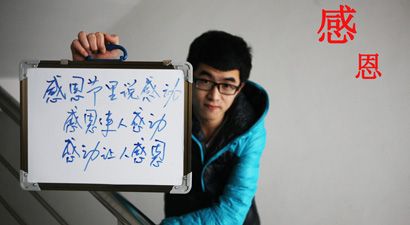 感恩
感恩节里说感动
感恩使人感动
感动让人感恩